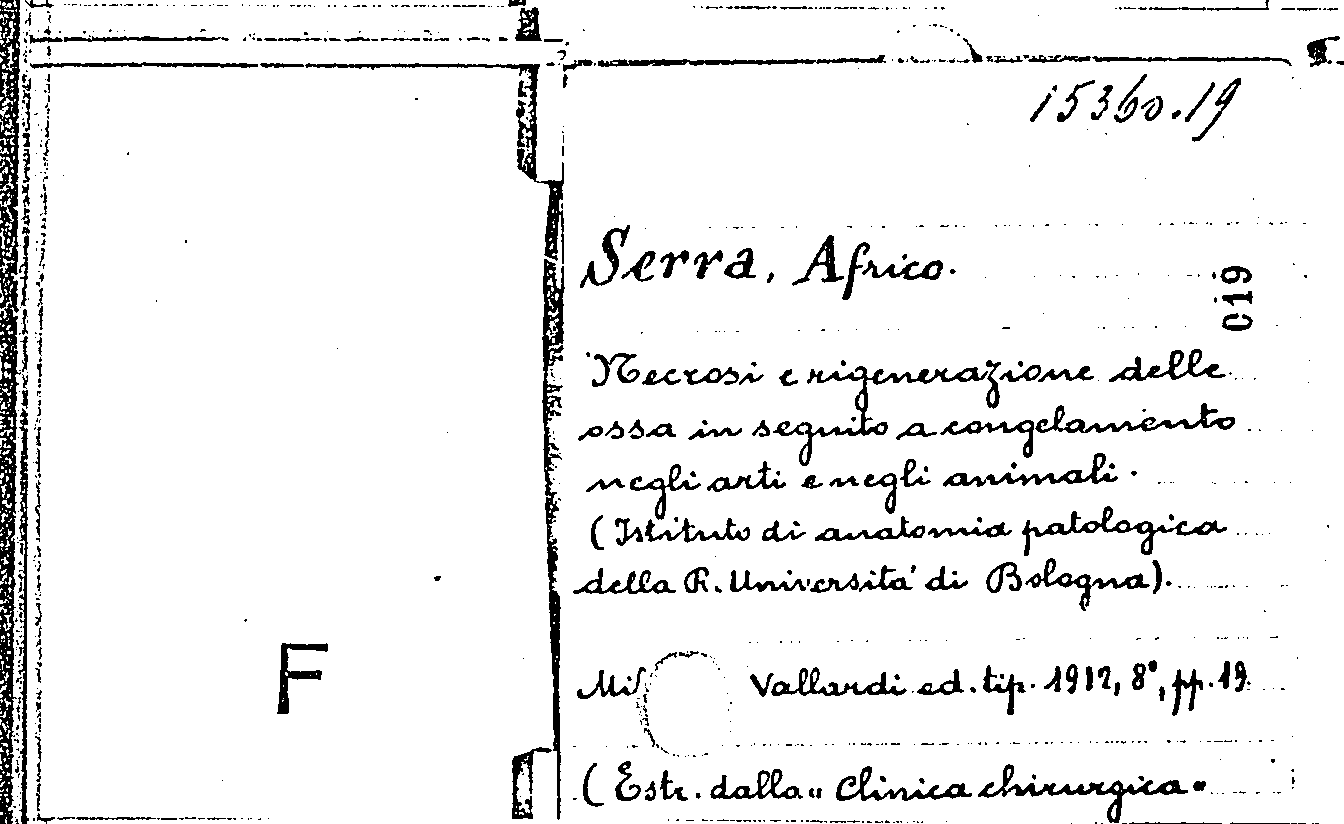 15360.19
Serra, Africo.
019
Necrosi e rigenerazione delle
ossa in seguito a congelamento
negli arti e negli animali.
(Istituto di anatomia patologica
della R. Università di Bologna).
F
Mil Vallardi ed. tip. 1912, 8°, pp. 19.
(Estr. dalla "Clinica chirurgica"